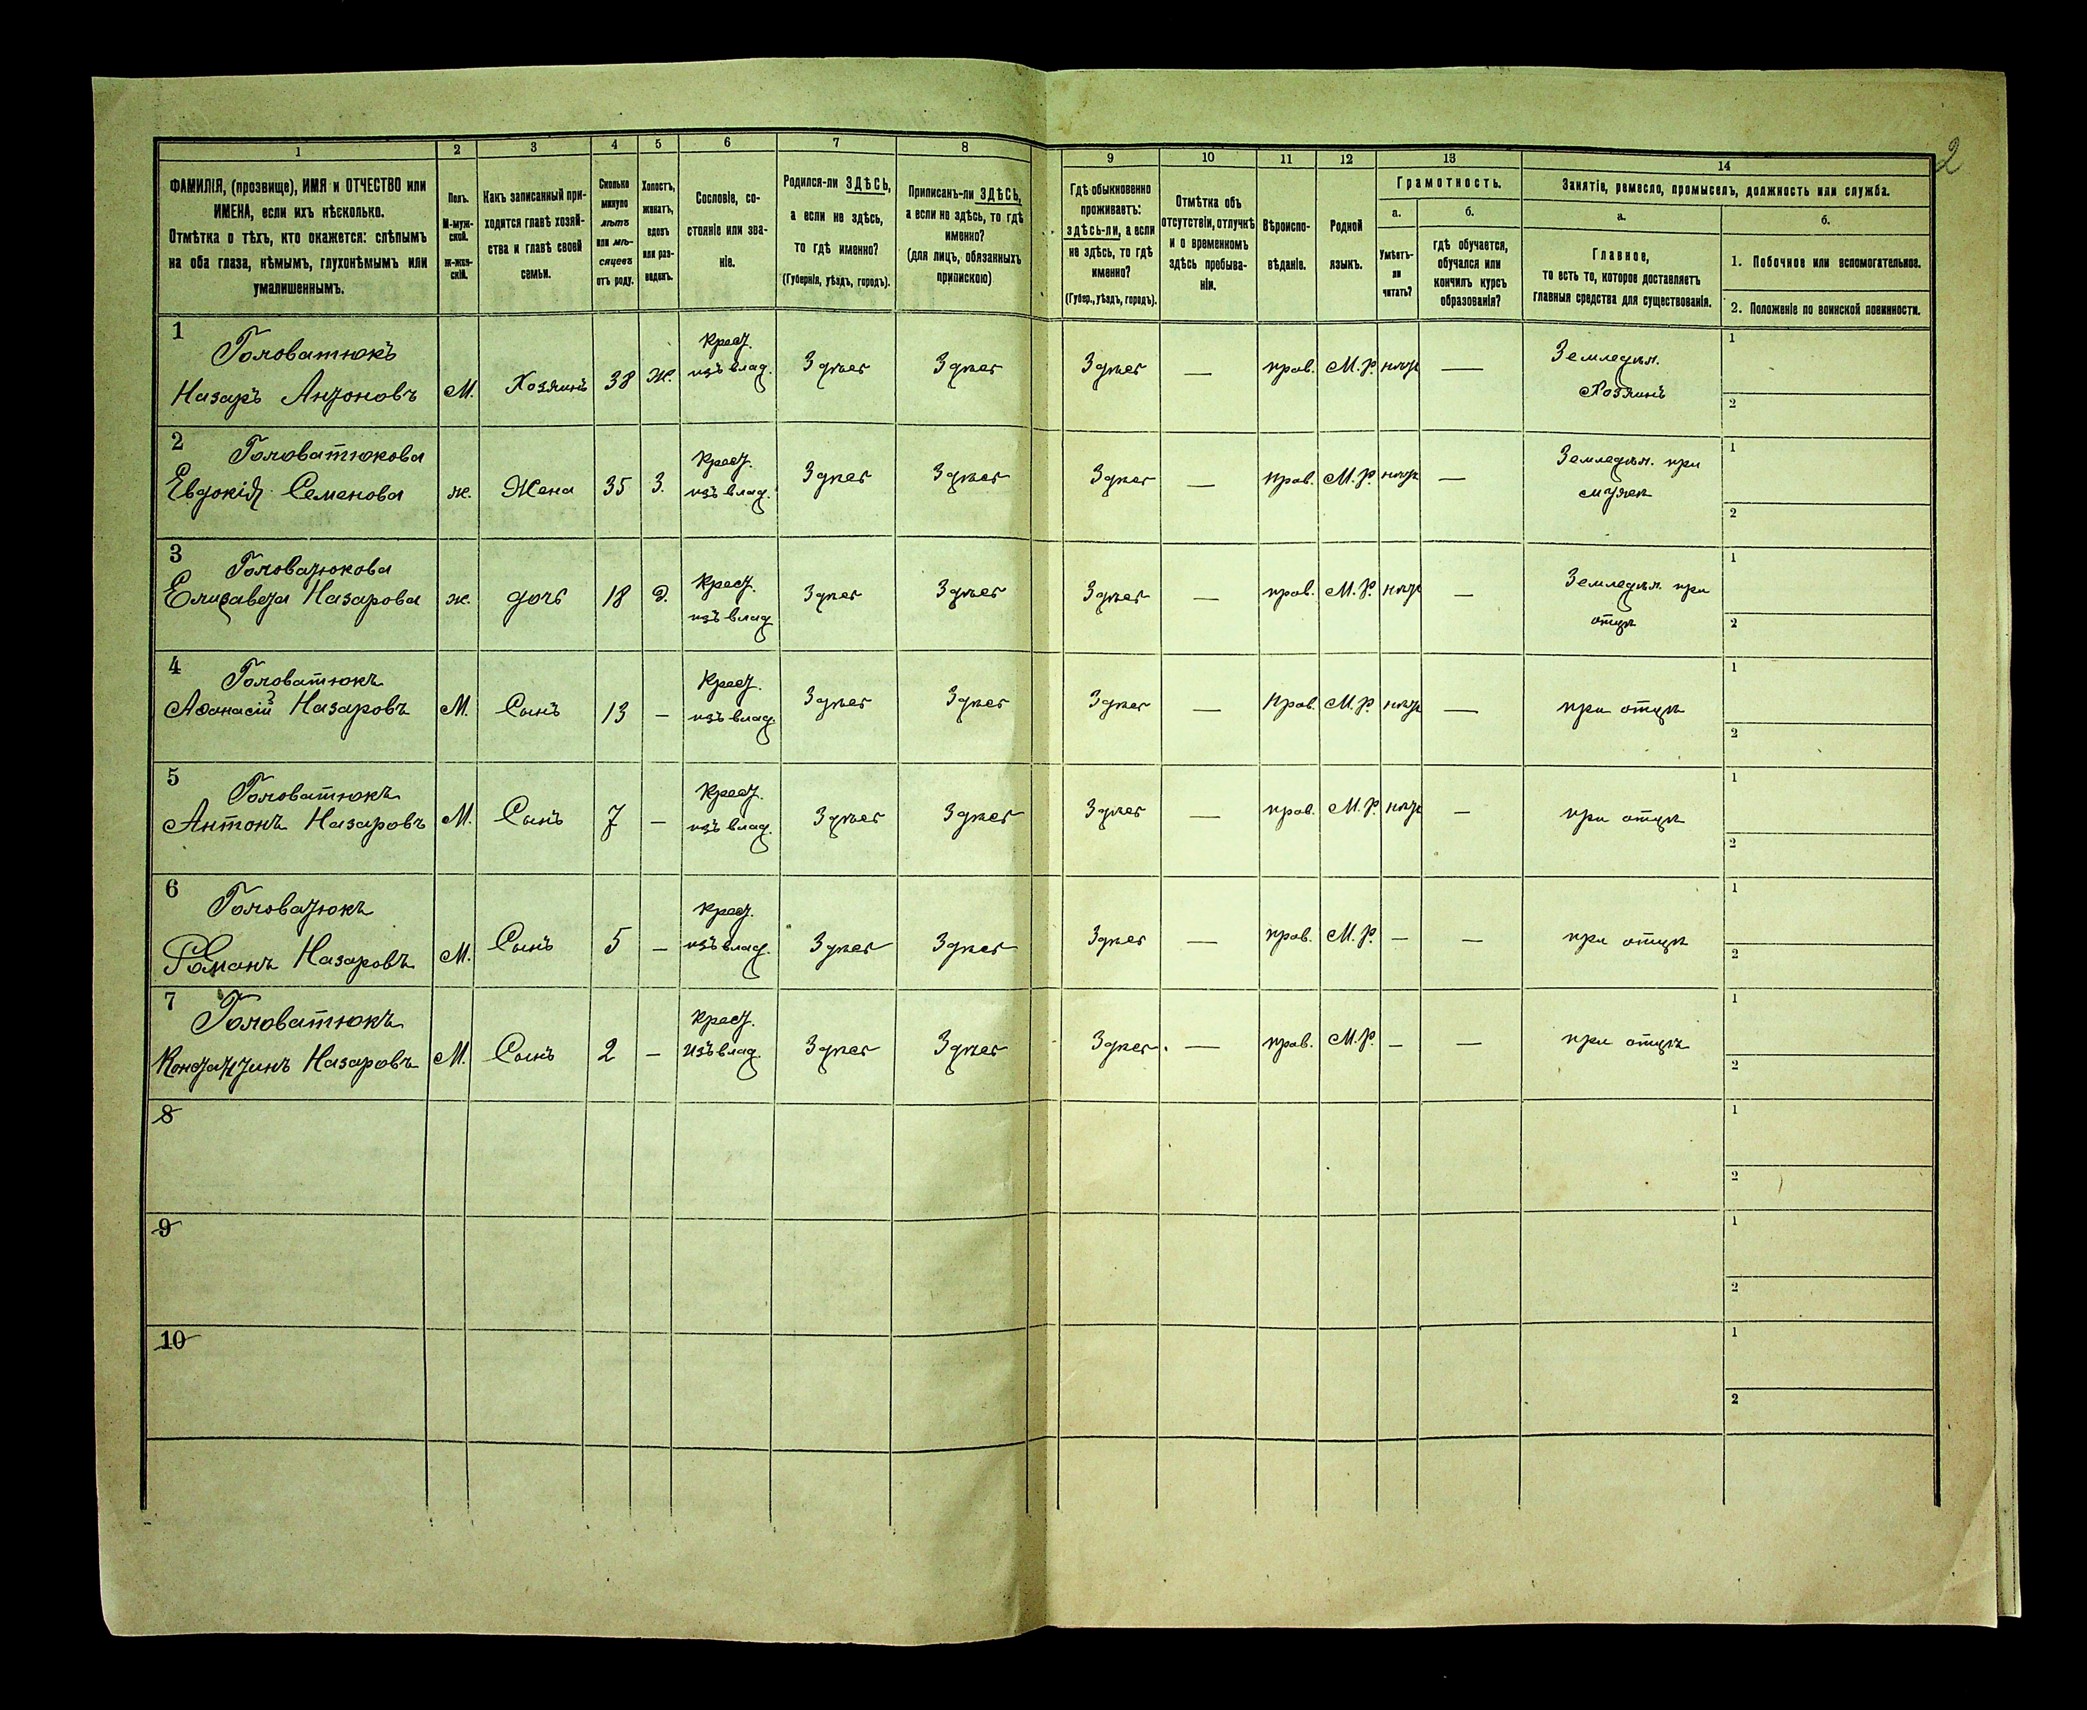 2
1 2 3 4 5 6 7 8 9 10 11 12 13 14
ФАМИЛІЯ, (прозвище), ИМЯ и ОТЧЕСТВО или
ИМЕНА, если ихъ нѣсколько.
Отмѣтка о тѣхъ, кто окажется: слѣпымъ
на оба глаза, нѣмымъ, глухонѣмымъ или
умалишеннымъ.
Полъ.
М-муж-
ской.
Ж-жен-
скій.
Какъ записанный при-
ходится главѣ хозяй-
ства и главѣ своей
семьи.
Сколько
минуло
лѣтъ
или мѣ-
сяцевъ
отъ роду.
Холостъ,
женатъ,
вдовъ
или раз-
веденъ.
Сословіе, со-
стояніе или зва-
ніе.
Родился-ли ЗДѢСЬ,
а если не здѣсь,
то гдѣ именно?
(Губернія, уѣздъ, городъ).
Приписанъ-ли ЗДѢСЬ,
а если не здѣсь, то гдѣ
именно?
(для лицъ, обязанныхъ
припискою)
Гдѣ обыкновенно
проживаетъ:
здѣсь-ли, а если
не здѣсь, то гдѣ
именно?
(Губер., уѣздъ, городъ).
Отмѣтка объ
отсутствіи, отлучкѣ
и о временномъ
здѣсь пребыва-
ніи.
Вѣроиспо-
вѣданіе.
Родной
языкъ.
Грамотность.
а.
Умѣетъ-
ли
читать?
б.
гдѣ обучается,
обучался или
кончилъ курсъ
образованія?
Занятіе, ремесло, промыселъ, должность или служба.
а.
Главное,
то есть то, которое доставляетъ
главныя средства для существованія.
б.
1. Побочное или вспомогательное.
2. Положеніе по воинской повинности.
1 Головатюкъ Крест. Землядѣл. 1
Назаръ Антоновъ М. Хозяинъ 38 Ж. изъ влад. Здѣсь Здѣсь Здѣсь — прав. М. Р. нѣтъ — Хозяинъ 2
2 Головатюкова Крест. Землядѣл. при 1
Евдокія Семенова ж. Жена 35 З. изъ влад. Здѣсь Здѣсь Здѣсь — прав. М. Р. нѣтъ — мужѣ 2
3 Головатюкова Крест. Землядѣл. при 1
Елизавета Назарова ж. дочь 18 Д. изъ влад Здѣсь Здѣсь Здѣсь — прав. М. Р. нѣтъ — отцѣ 2
4 Головатюкъ Крест. 1
Афанасій Назаровъ М. Сынъ 13 — изъ влад. Здѣсь Здѣсь Здѣсь — Прав. М. Р. нѣтъ — при отцѣ 2
5 Головатюкъ Крест. 1
Антонъ Назаровъ М. Сынъ 7 — изъ влад. Здѣсь Здѣсь Здѣсь — прав. М. Р. нѣтъ — при отцѣ 2
6 Головатюкъ Крест. 1
Романъ Назаровъ М. Сынъ 5 — изъ влад. Здѣсь Здѣсь Здѣсь — прав. М. Р. — — при отцѣ 2
7 Головатюкъ Крест. 1
Константинъ Назаровъ М. Сынъ 2 — изъ влад. Здѣсь Здѣсь Здѣсь. — прав. М. Р. — — при отцѣ 2
8 1
2
9 1
2
10 1
2